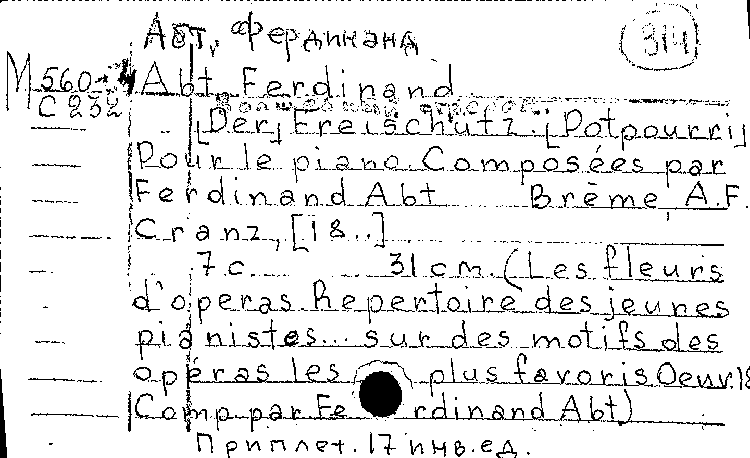 Абт, Фердинанд
314
M 560-4 Abt, Ferdinand
C 232
[Der] Freischütz. [Potpourri]
Pour le piano. Composées par
Ferdinand Abt Brême, A.F.
Cranz, [18..]
7 c. 31 cm. (Les fleurs
d'operas. Repertoire des jeunes
pianistes... sur des motifs des
opéras les plus favoris. Oeuv. 18
Comp. par Ferdinand Abt)
Приплет. 17 инв. ед.